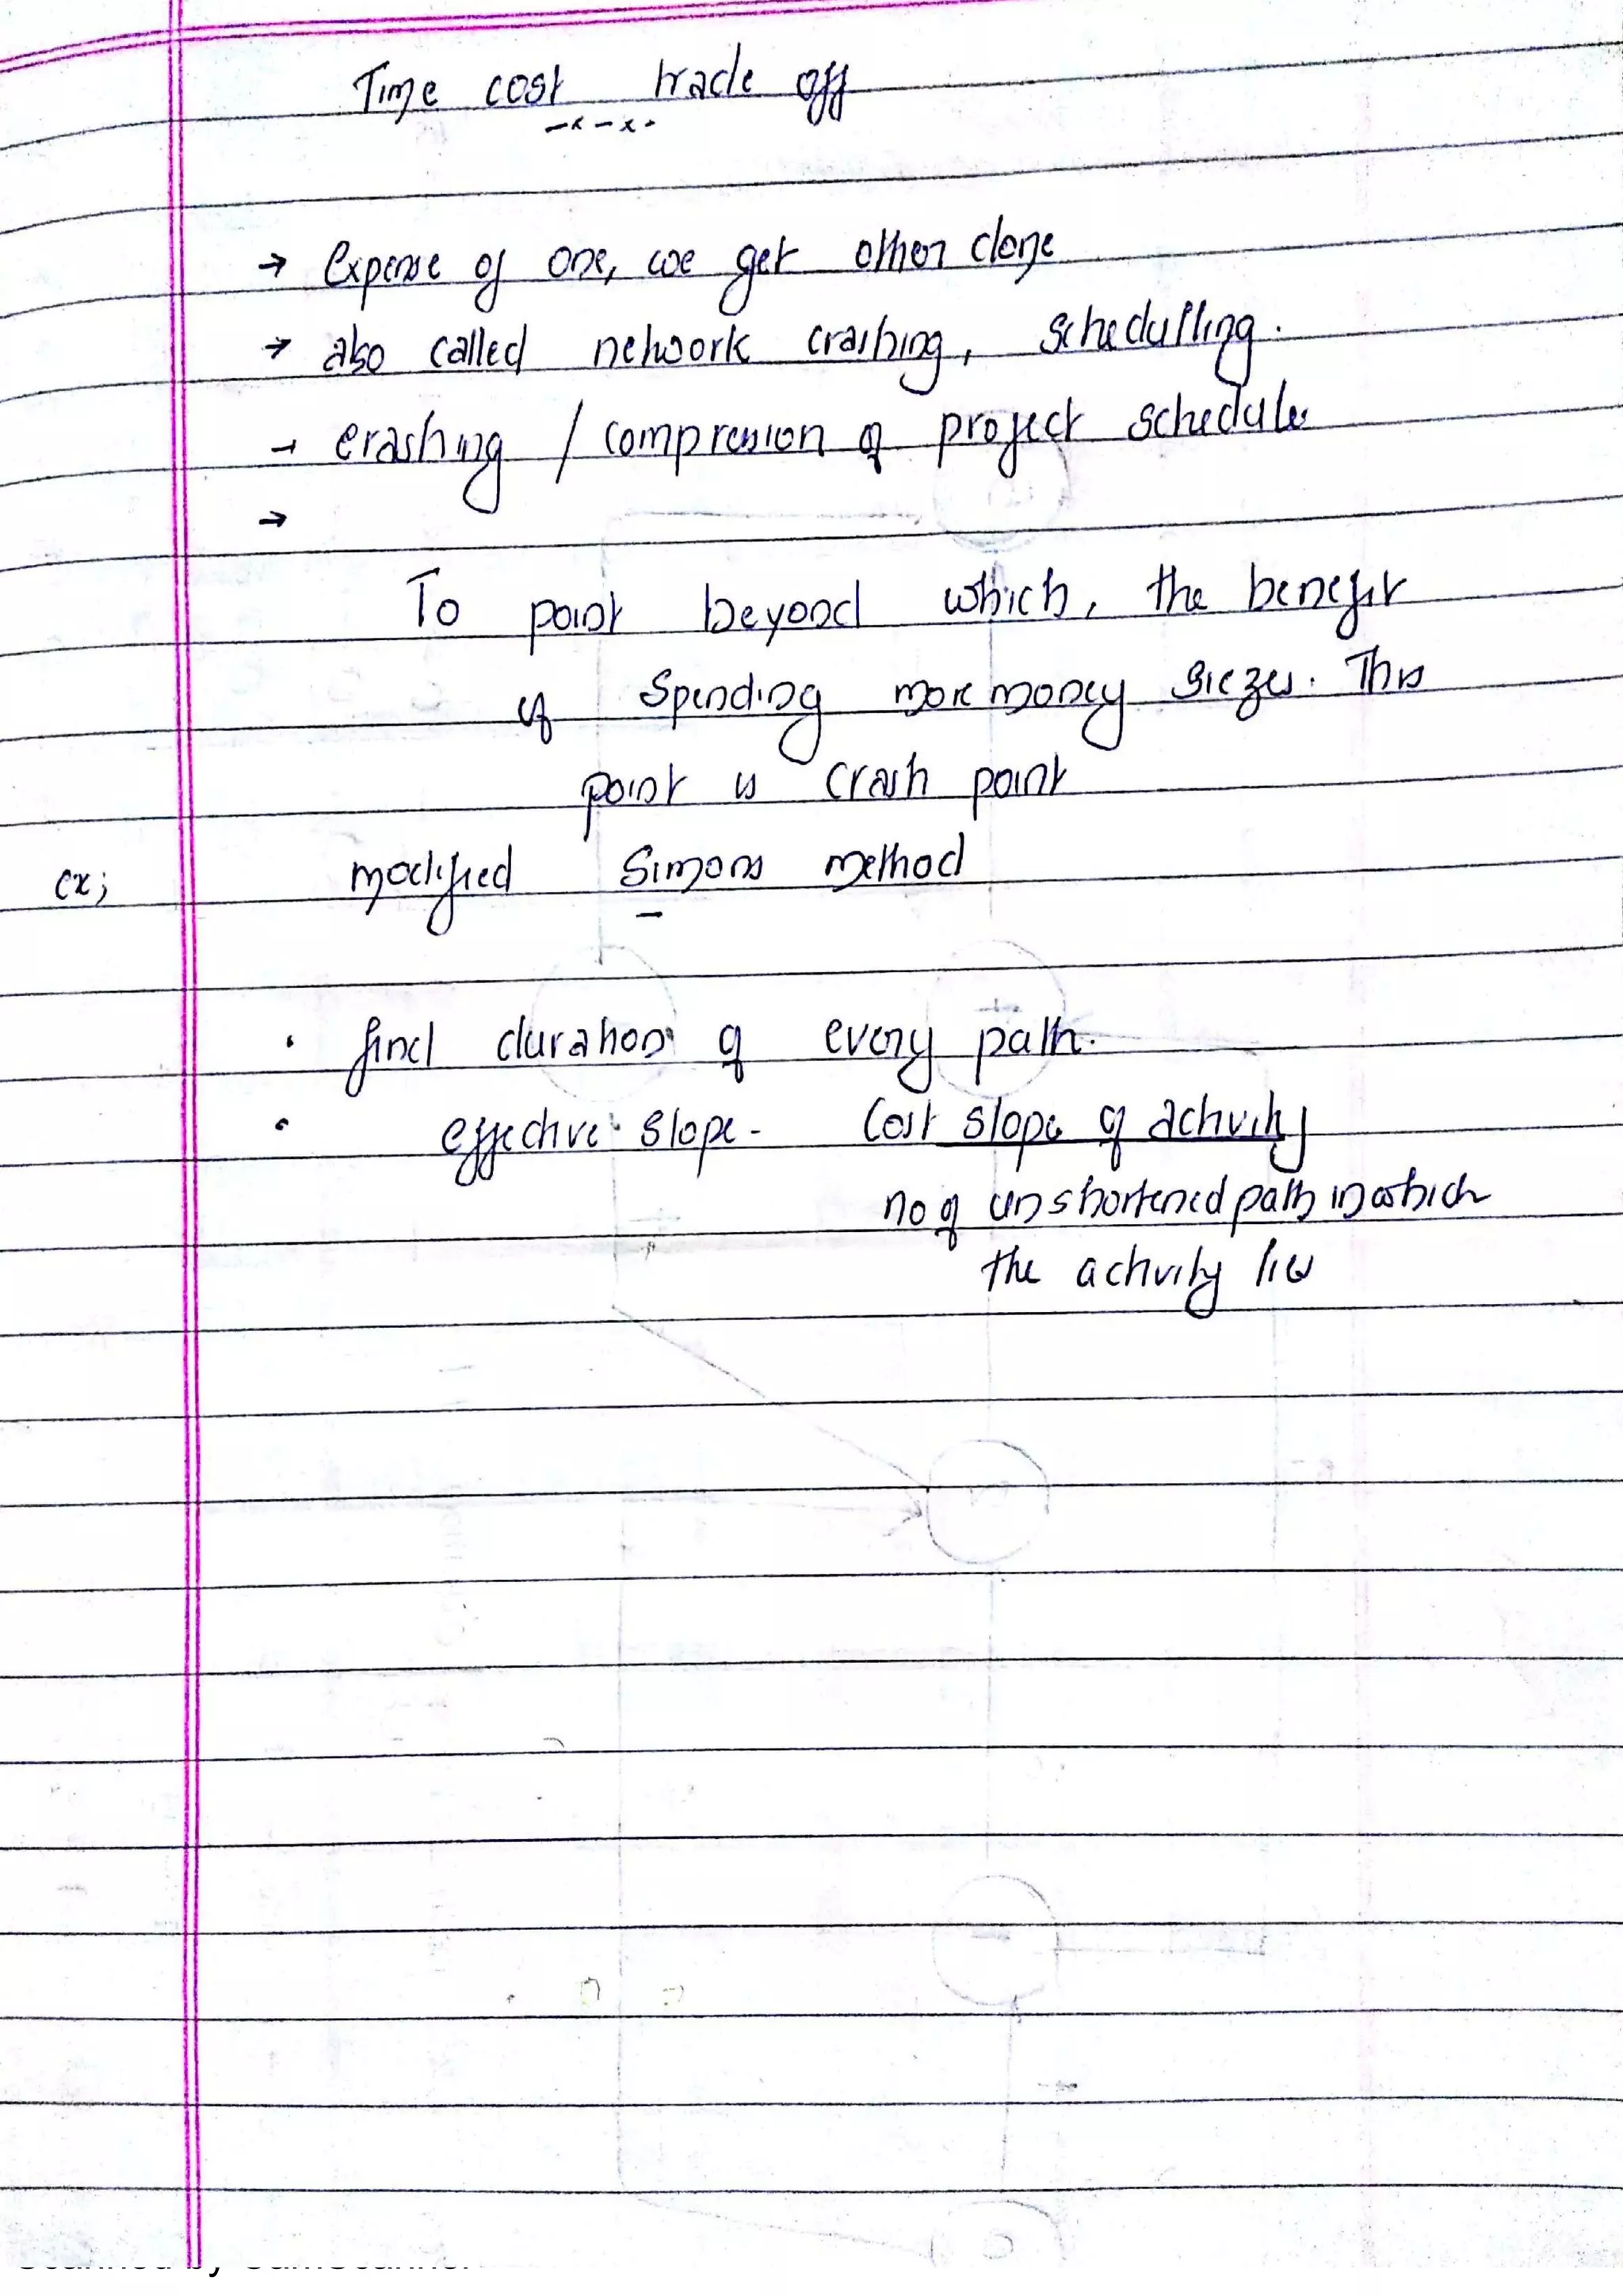 Time cost trade off
-x-x-
→ Expense of one, we get other done
→ also called network crashing, schedulling.
→ crashing / compression of project schedule
→
To point beyond which, the benefit
of spending more money siezes. This
point is crash point
ex; modified Simons method
• find duration of every path.
• effective slope - Cost slope of activity
no of unshortened path in which
the activity lies